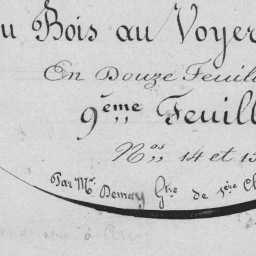 u Bois au Voyer
En Douze Feuill
9ème Feuill
Nos 14 et 15
Par Mr. Demay Gtre de 1ère Cl